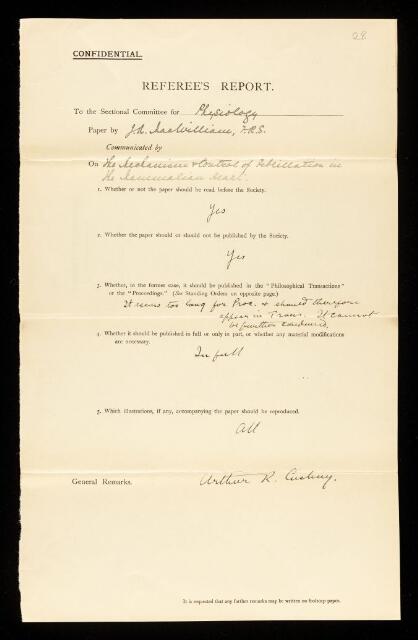 29
CONFIDENTIAL.
REFEREE'S REPORT.
To the Sectional Committee for Physiology
Paper by J.A. MacWilliam, F.R.S.
Communicated by
On The Mechanism & Control of Fibrillation in
the Mammalian Heart.
1. Whether or not the paper should be read before the Society.
Yes
2. Whether the paper should or should not be published by the Society.
Yes
3. Whether, in the former case, it should be published in the "Philosophical Transactions"
or the "Proceedings." (See Standing Orders on opposite page.)
It seems too long for Proc. & should therefore
appear in Trans. It cannot
be further condensed.
4. Whether it should be published in full or only in part, or whether any material modifications
are necessary.
In full
5. Which illustrations, if any, accompanying the paper should be reproduced.
All
General Remarks.
Arthur R. Cushny.
It is requested that any further remarks may be written on foolscap paper.